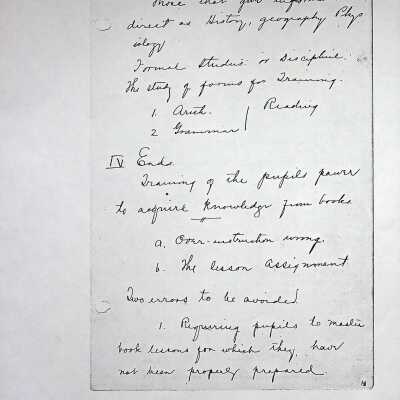 those that give
direct as History, geography Phys
iology
Formal Studies or Discipline.
The study of forms for Training.
1. Arith. Reading
2 Grammar
IV Ends.
Training of the pupils power
to acquire Knowledge from books
a. Over-instruction wrong.
b. The lesson assignment
Two errors to be avoided.
1. Requiring pupils to master
book lessons for which they have
not been properly prepared.